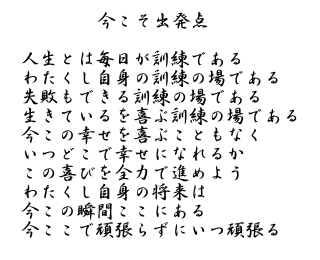 今こそ出発点
人生とは毎日が訓練である
わたくし自身の訓練の場である
失敗もできる訓練の場である
生きているを喜ぶ訓練の場である
今この幸せを喜ぶこともなく
いつどこで幸せになれるか
この喜びを全力で進めよう
わたくし自身の将来は
今この瞬間ここにある
今ここで頑張らずにいつ頑張る